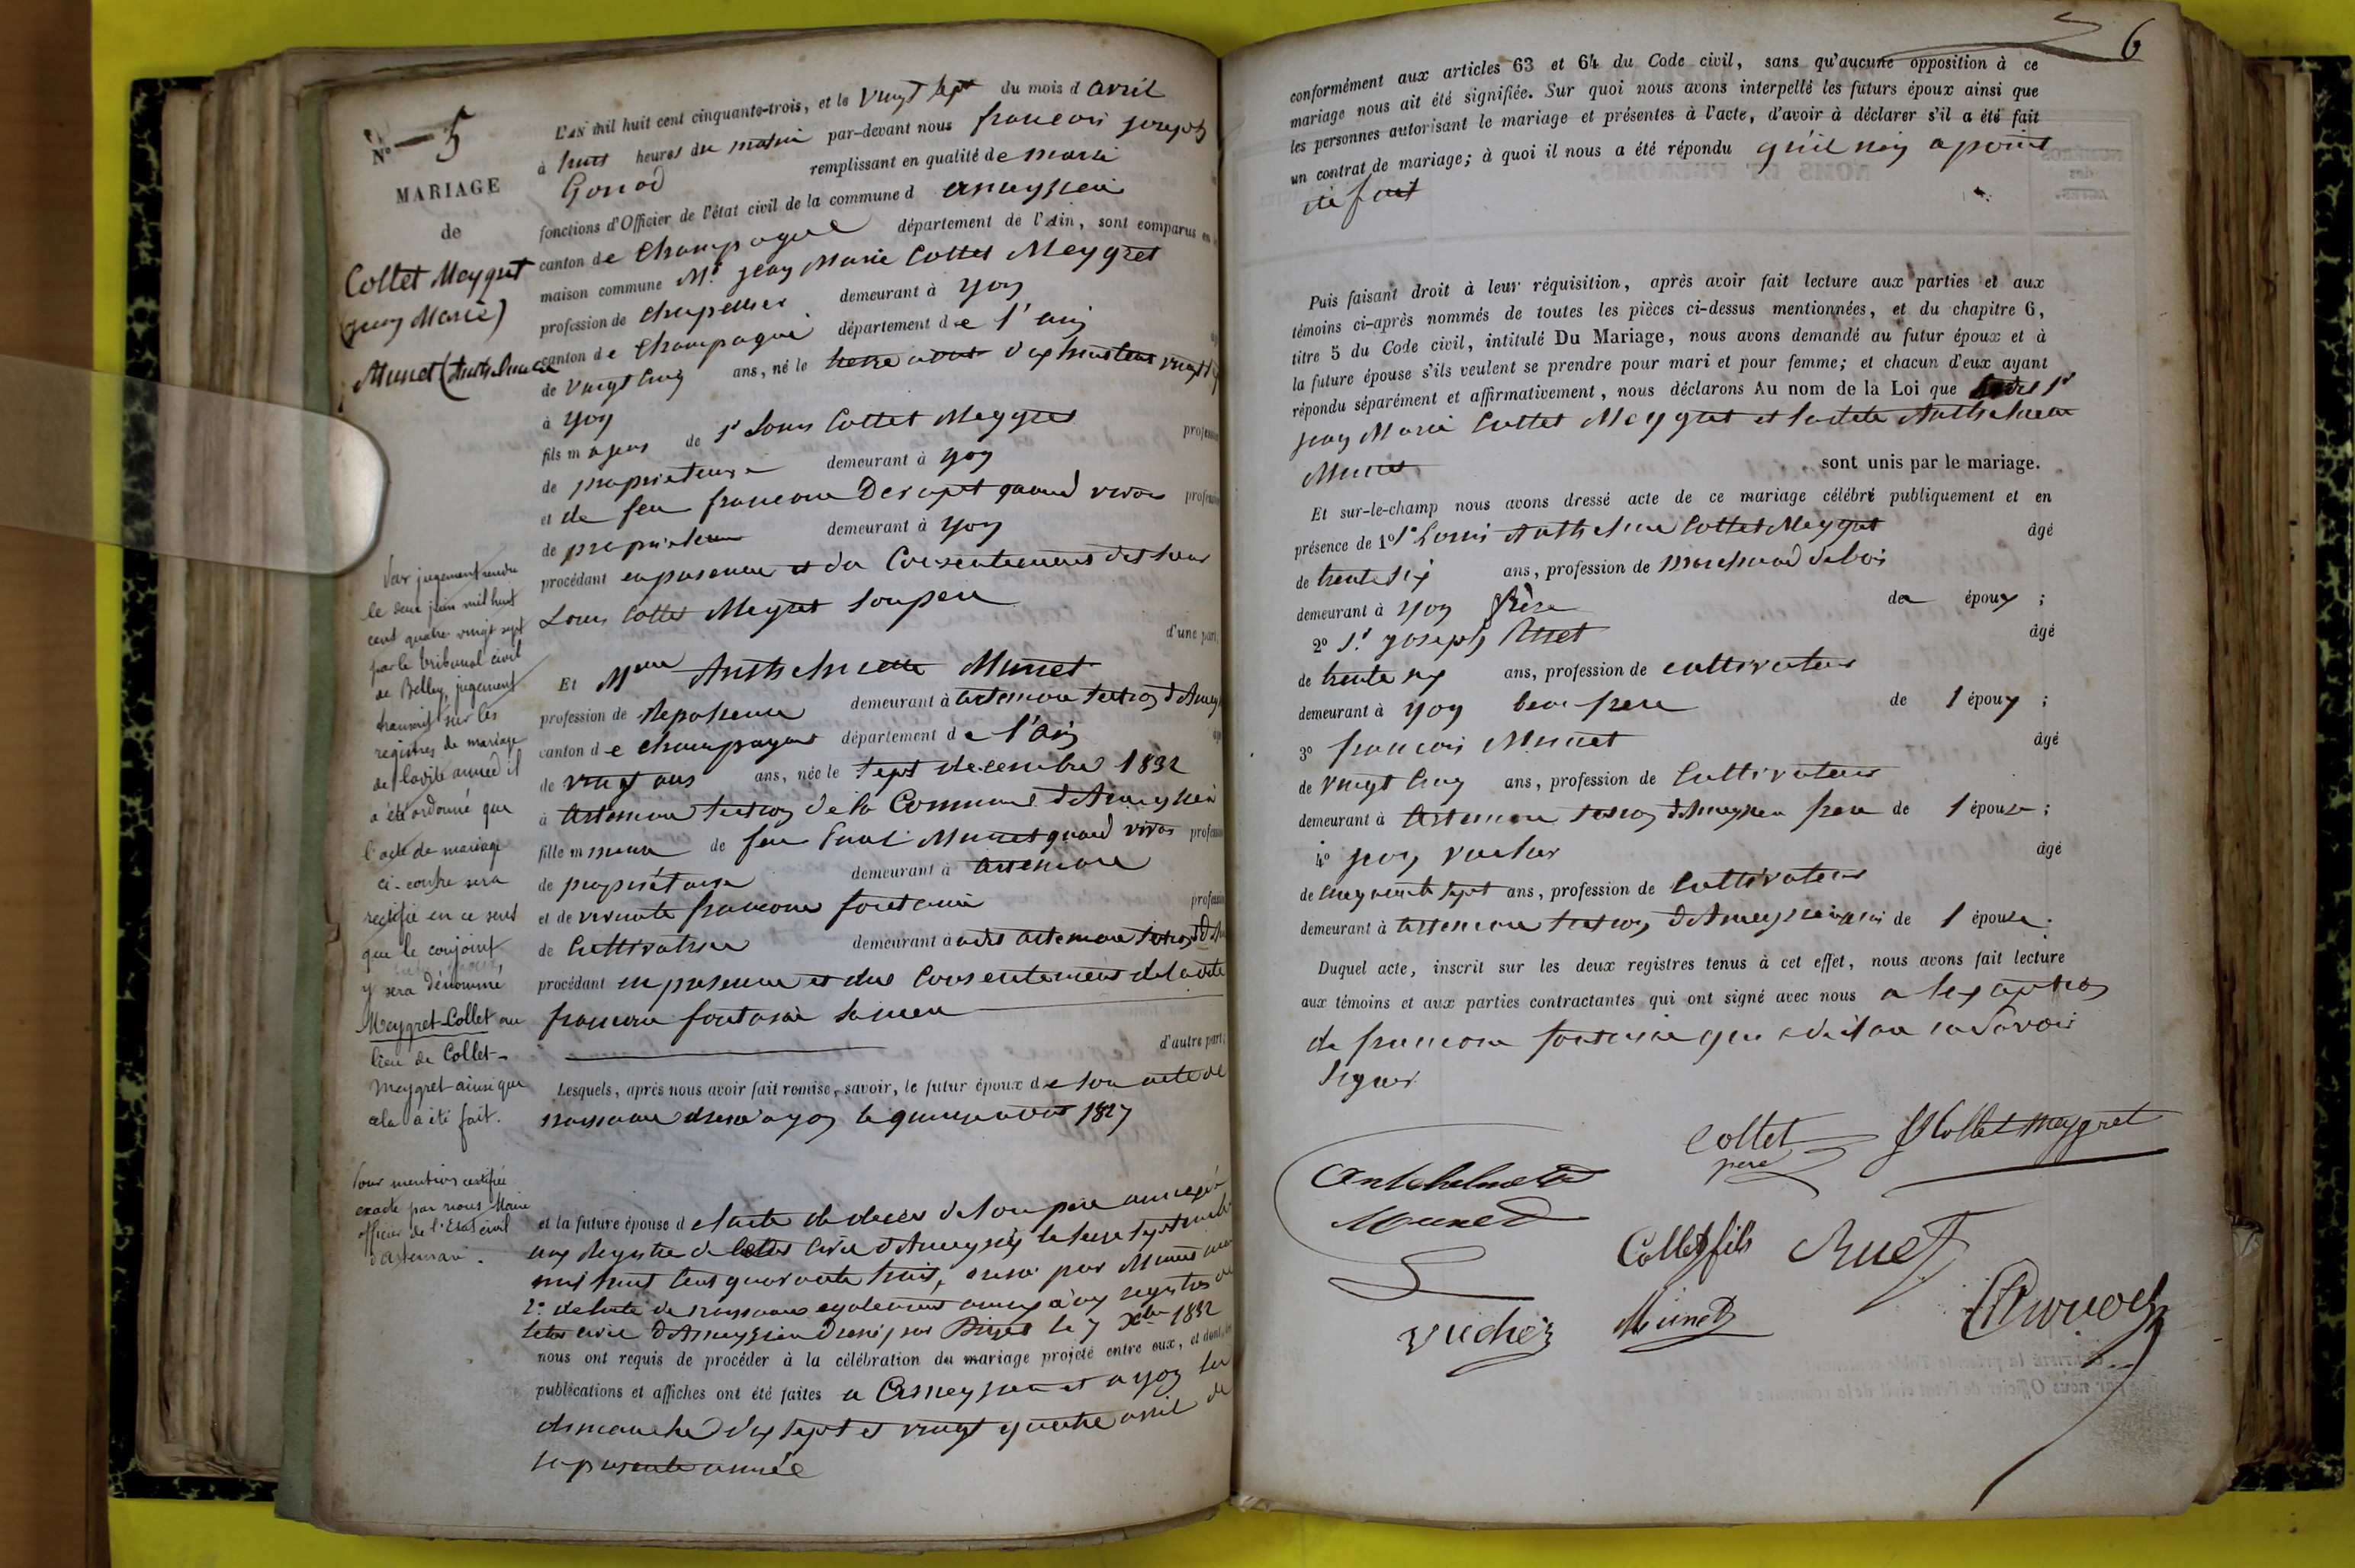 N° 5
MARIAGE
de
Collet Meygret
(jean Marie)
Munet (Anthelmette
L'AN mil huit cent cinquante-trois, et le vingt sept du mois d avril
à huit heures du matin par-devant nous francois joseph
Gonod remplissant en qualité de maire
fonctions d'Officier de l'état civil de la commune d ameyzieu
canton de Champagne département de l'Ain, sont comparus en
maison commune Mr. jean Marie Collet Meygret
profession de chapellier demeurant à yon
canton de Champagne département de l'ain
de vingt cinq ans, né le treize aout dix huit cent vingt
à yon
fils majeur de Sr Louis Collet Meygret profession
de proprietaire demeurant à yon
et de feu francoise quand vivait profession
de propriétaire demeurant à yon
procédant en presence et du Consentement du sieur
Louis Collet Meygret son pere
d'une part,
Et Melle Anthelmette Munet
profession de demeurant à artemare section d'Ameyzieu
canton de champagne département de l'Ain
de vingt ans ans, née le sept decembre 1832
à Artemare section de la Commune d'Ameyzieu
fille mineure de feu Munet quand vivait profession
de propriétaire demeurant à artemare
et de vivante francoise fontaine profession
de Cultivatrice demeurant à artemare section d
procédant en presence et du consentement de ladite
francoise fontaine sa mere
d'autre part;
Lesquels, après nous avoir fait remise, savoir, le futur époux de son acte de
naissance dressé a yon le quinze aout 1827
et la future épouse d e l'acte de deces de son pere annexé
aux Registre de l'état civil d'Ameyzieu le seize septembre
mil huit cent quarante trois, dressé par Munet maire
2° de l'acte de naissance egalement annexé aux registres de
letat civil d'Ameyzieu dressé par le 7 Xbre 1832
nous ont requis de procéder à la célébration du mariage projeté entre eux, et dont les
publications et affiches ont été faites a Ameyzieu et a yon les
dimanche dix sept et vingt quatre avril de
la presente année
Par jugement rendu
le deux juin mil huit
cent quatre vingt sept
par le tribunal civil
de Belley, jugement
transcrit sur les
registres de mariage
de ladite année il
a été ordonné que
l'acte de mariage
ci-contre sera
rectifié en ce sens
que le conjoint
y sera dénommé
Meygret-Collet au
lieu de Collet-
Meygret ainsi que
cela a été fait.
Pour mention certifiée
exacte par nous Maire
officier de l'Etat civil
d'Artemare.
6
conformément aux articles 63 et 64 du Code civil, sans qu'aucune opposition à ce
mariage nous ait été signifiée. Sur quoi nous avons interpellé les futurs époux ainsi que
les personnes autorisant le mariage et présentes à l'acte, d'avoir à déclarer s'il a été fait
un contrat de mariage; à quoi il nous a été répondu qu'il n'en a point
été fait
Puis faisant droit à leur réquisition, après avoir fait lecture aux parties et aux
témoins ci-après nommés de toutes les pièces ci-dessus mentionnées, et du chapitre 6,
titre 5 du Code civil, intitulé Du Mariage, nous avons demandé au futur époux et à
la future épouse s'ils veulent se prendre pour mari et pour femme; et chacun d'eux ayant
répondu séparément et affirmativement, nous déclarons Au nom de la Loi que Sr
jean Marie Collet Meygret et ladite Anthelmette
Munet
sont unis par le mariage.
Et sur-le-champ nous avons dressé acte de ce mariage célébré publiquement et en
présence de 1° Sr Louis Anthelme Collet Meygret âgé
de trente six ans, profession de marchand de bois
demeurant à yon frère de époux ;
2° Sr joseph Ruet âgé
de trente six ans, profession de cultivateur
demeurant à yon beau frere de l époux ;
3° francois Munet âgé
de vingt cinq ans, profession de Cultivateur
demeurant à Artemare section d'Ameyzieu frere de l épouse ;
4° jean vucher âgé
de cinquante sept ans, profession de Cultivateur
demeurant à artemare section d'Ameyzieu de l épouse.
Duquel acte, inscrit sur les deux registres tenus à cet effet, nous avons fait lecture
aux témoins et aux parties contractantes qui ont signé avec nous a lexception
de francoise fontaine qui a declaré ne savoir
signer
Collet
pere
JMCollet meygret
Anthelmette
Munet
Collet fils
Ruet
Vucher
Munet